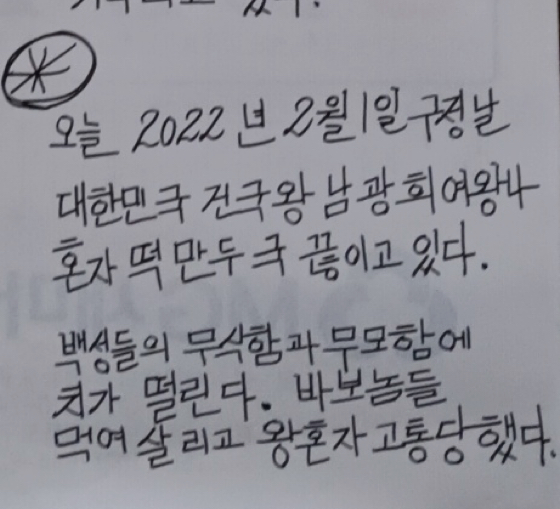 오늘 2022년 2월1일 구정날
대한민국 건국왕 남광희여왕나
혼자 떡만두국 끓이고 있다.
백성들의 무식함과 무모함에
치가 떨린다. 바보놈들
먹여 살리고 왕혼자고통당했다.